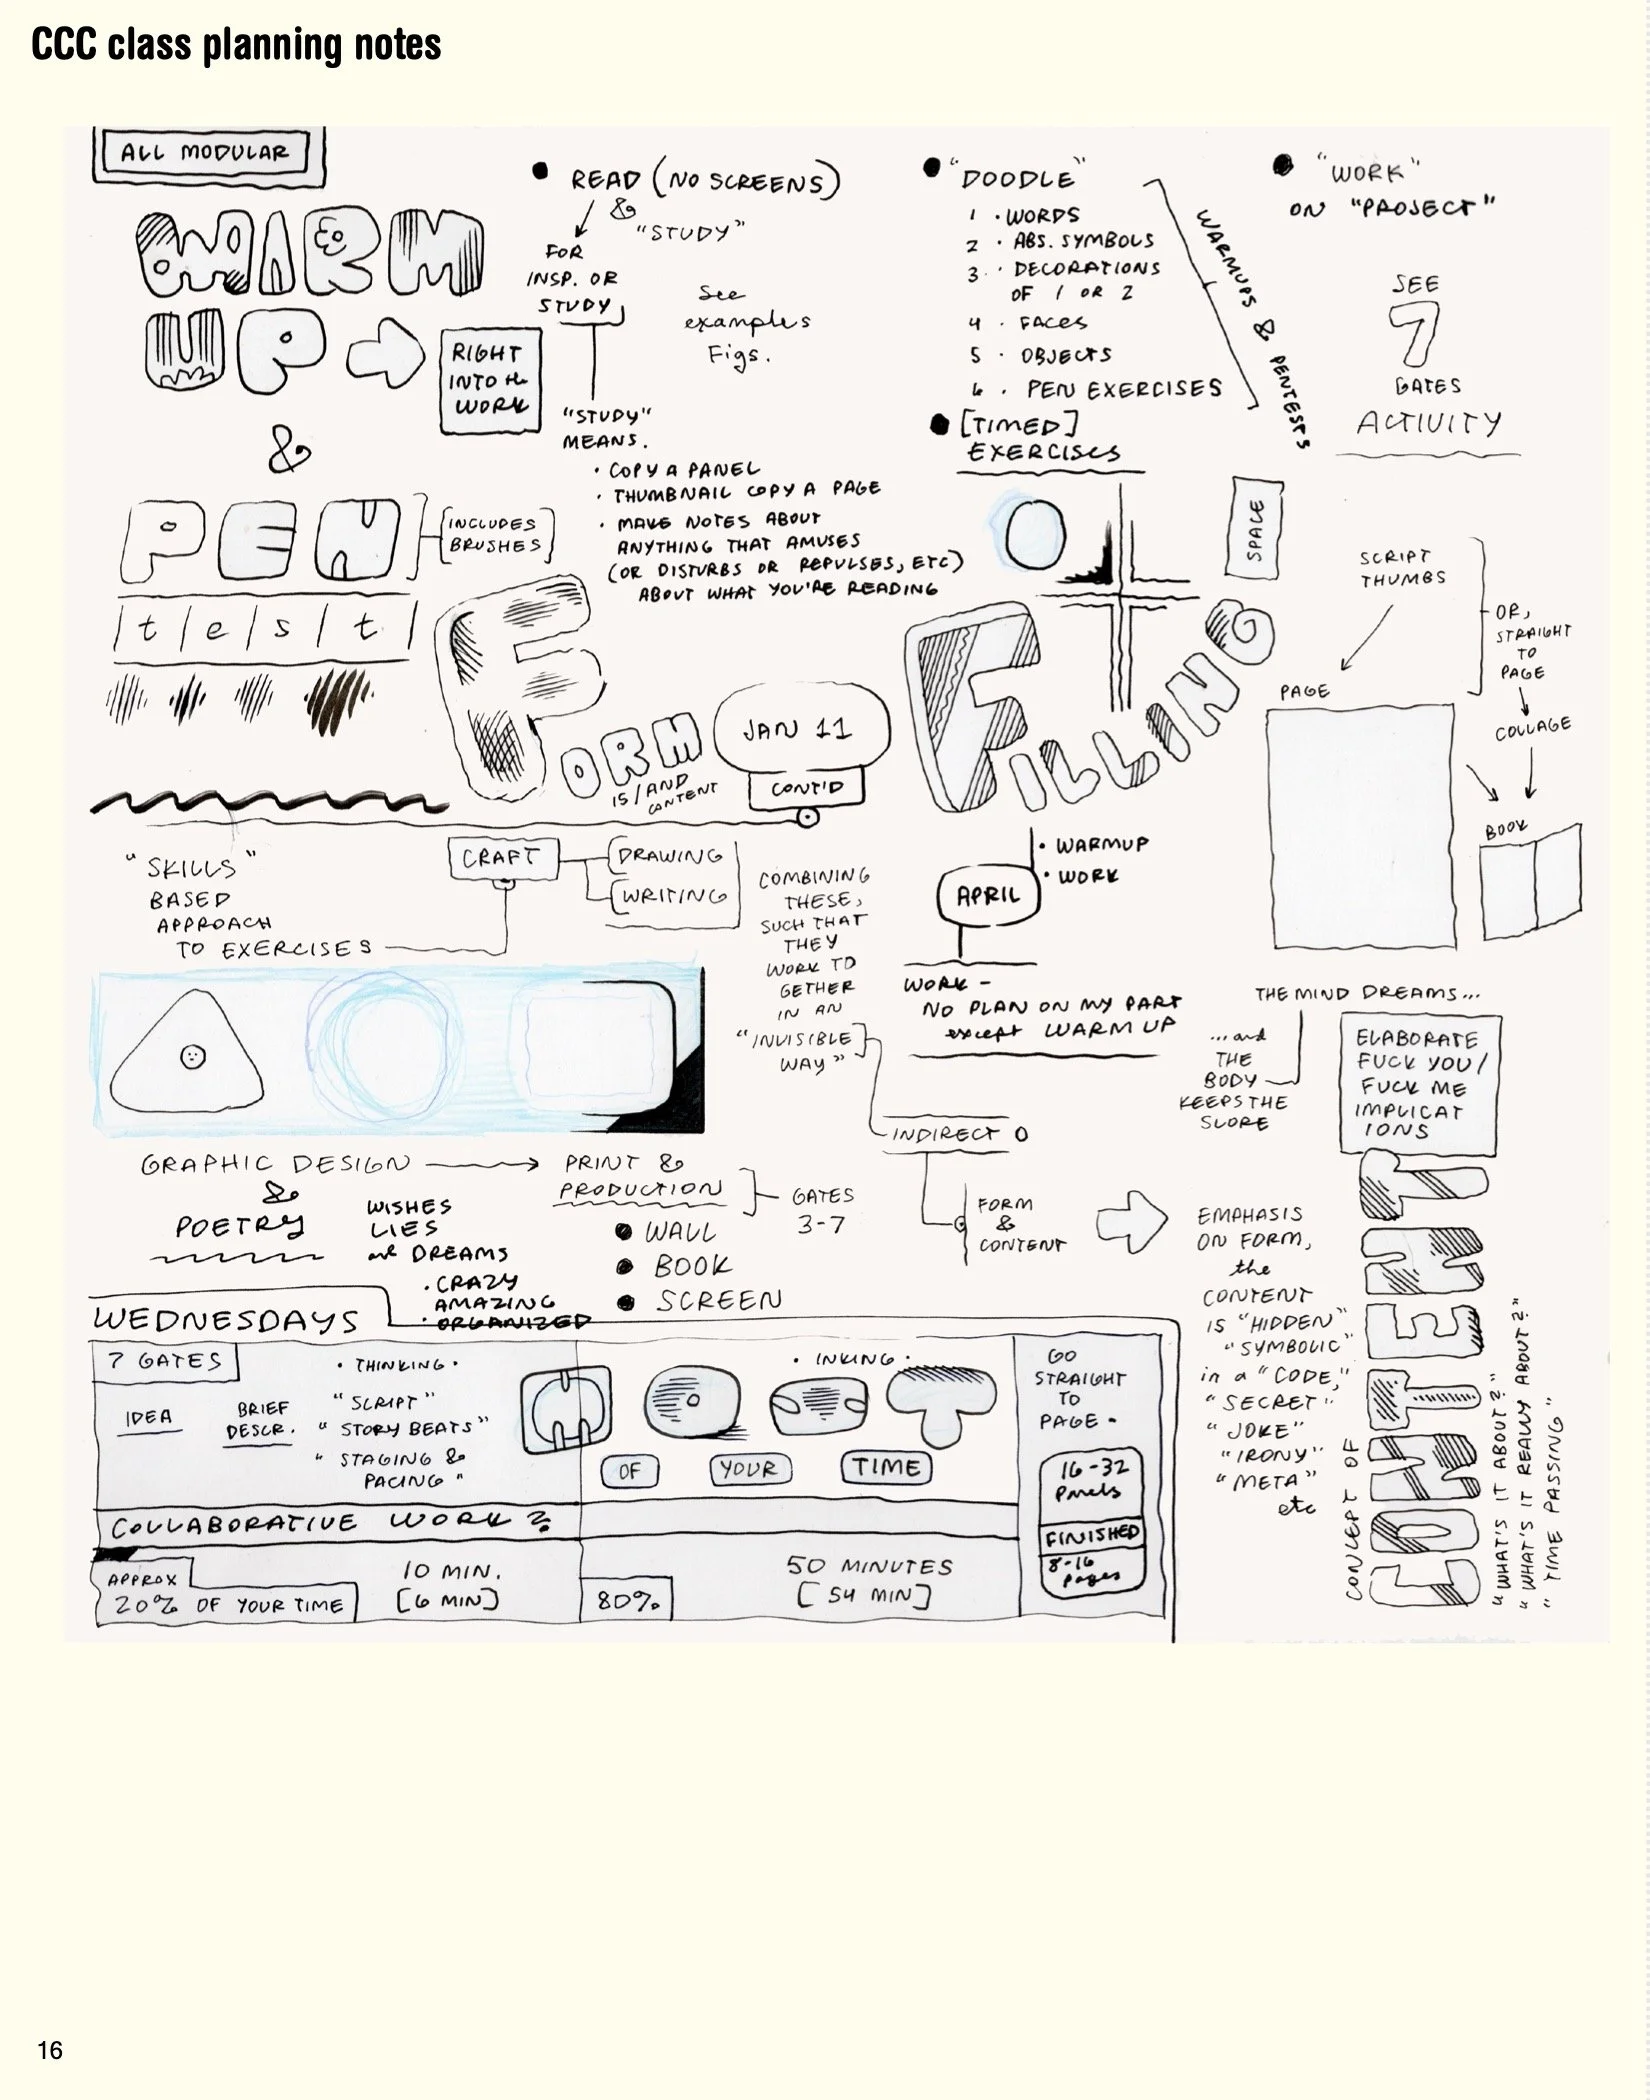 CCC class planning notes
ALL MODULAR
WARM
UP
RIGHT
INTO the
WORK
&
PEN
[INCLUDES
BRUSHES]
test
• READ (NO SCREENS)
&
"STUDY"
FOR
INSP. OR
STUDY
See
examples
Figs.
"STUDY"
MEANS.
• COPY A PANEL
• THUMBNAIL COPY A PAGE
• MAKE NOTES ABOUT
ANYTHING THAT AMUSES
(OR DISTURBS OR REPULSES, ETC)
ABOUT WHAT YOU'RE READING
• "DOODLE"
1 • WORDS
2 • ABS. SYMBOLS
3. • DECORATIONS
OF 1 OR 2
4 • FACES
5 • OBJECTS
6 • PEN EXERCISES
WARMUPS & PENTESTS
• [TIMED]
EXERCISES
• "WORK"
ON "PROJECT"
SEE
7
GATES
ACTIVITY
SPACE
SCRIPT
THUMBS
OR,
STRAIGHT
TO
PAGE
COLLAGE
PAGE
BOOK
FORM
IS/AND
CONTENT
JAN 11
CONT'D
FILLING
"SKILLS"
BASED
APPROACH
TO EXERCISES
CRAFT
DRAWING
WRITING
COMBINING
THESE,
SUCH THAT
THEY
WORK TO
GETHER
IN AN
"INVISIBLE
WAY"
• WARMUP
• WORK
APRIL
WORK -
NO PLAN ON MY PART
except WARM UP
THE MIND DREAMS...
...and
THE
BODY
KEEPS THE
SCORE
ELABORATE
FUCK YOU/
FUCK ME
IMPLICAT
IONS
INDIRECT O
FORM
&
CONTENT
EMPHASIS
ON FORM,
the
CONTENT
IS "HIDDEN"
"SYMBOLIC"
in a "CODE,"
"SECRET"
"JOKE"
"IRONY"
"META"
etc
CONCEPT OF
CONTENT
"WHAT'S IT ABOUT?"
"WHAT'S IT REALLY ABOUT?"
"TIME PASSING"
GRAPHIC DESIGN
&
POETRY
WISHES
LIES
and DREAMS
• CRAZY
AMAZING
• ORGANIZED
PRINT &
PRODUCTION
GATES
3-7
• WALL
• BOOK
• SCREEN
WEDNESDAYS
7 GATES
IDEA
BRIEF
DESCR.
• THINKING •
"SCRIPT"
"STORY BEATS"
"STAGING &
PACING"
• INKING •
MOST
OF YOUR TIME
GO
STRAIGHT
TO
PAGE -
16-32
Panels
FINISHED
8-16
pages
COLLABORATIVE WORK?
APPROX
20% OF YOUR TIME
10 MIN.
[6 MIN]
80%
50 MINUTES
[54 MIN]
16